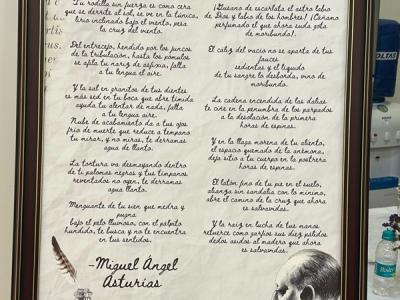 Tu rodilla sin fuerza es como cera
que se derrite al sol, se va en la túnica,
lirio inclinado bajo el viento, pesa
la cruz del viento.
Del entrecejo, hendido por los juncos
de la tribulación, hasta los pómulos
se afila tu nariz de asfixia, falla
a tu lengua aire.
Y la sal en granitos de tus dientes
es más sed en tu boca que abre tímida
ayuda tu alentar de nada, falla
a tu lengua aire.
Nube de acabamiento da a tus ojos
frío de muerte que reduce a témpano
tu mirar, y no miras, te derramas
agua de llanto.
La tortura va desmayando dentro
de ti palomas negras y tus tímpanos
reventados no oyen, te derramas
agua llanto.
Menguante de tu sien que medra y
pugna
bajo el pelo lluvioso, con el pálpito
hundido, te busca y no te encuentra
en tus sentidos.
¡Gusano de escarlata el astro labio
de Dios y labio de los hombres! ¡Cínamo
perfumado el que ahora suda gota
de moribundo!.
El cáliz del vacío no se aparta de tus
fauces
sedientas y el líquido
de tu sangre lo desborda, vino de
moribundo.
La cadena encendida de las dalias
te ciñe en la penumbra de los párpados
a la desolación de la primera
horas de espinas.
Y en la llaga morena de tu aliento,
el espacio quemado de la anémona,
deja sitio a tu cuerpo en la postrera
horas de espinas.
El latón fino de tu pie en el suelo,
alianza sin sandalia con lo mínimo,
abre el camino de la cruz que ahora
es salvavidas.
Y la raíz en lucha de tus manos
retuerce como garfios sus diez pálidos
dedos asidos al madero que ahora
es salvavidas.
-Miguel Ángel
Asturias